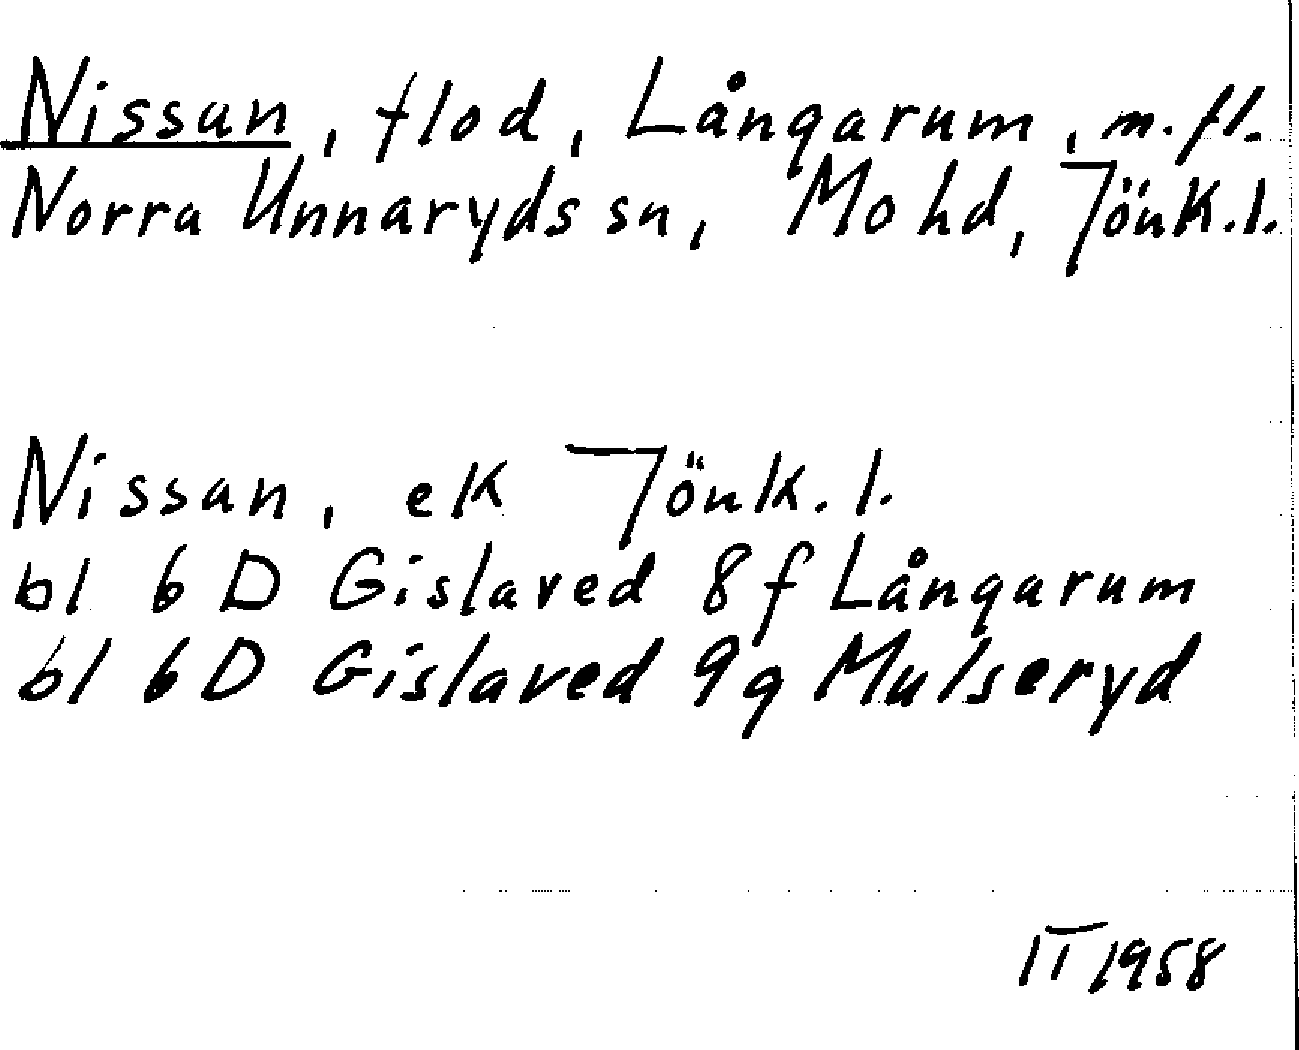 Nissan, flod, Långarum, m.fl.
Norra Unnaryds sn, Mo hd, Jönk.l.
Nissan, ek Jönk.l.
bl 6 D Gislaved 8f Långarum
bl 6D Gislaved 9g Mulseryd
IT 1958